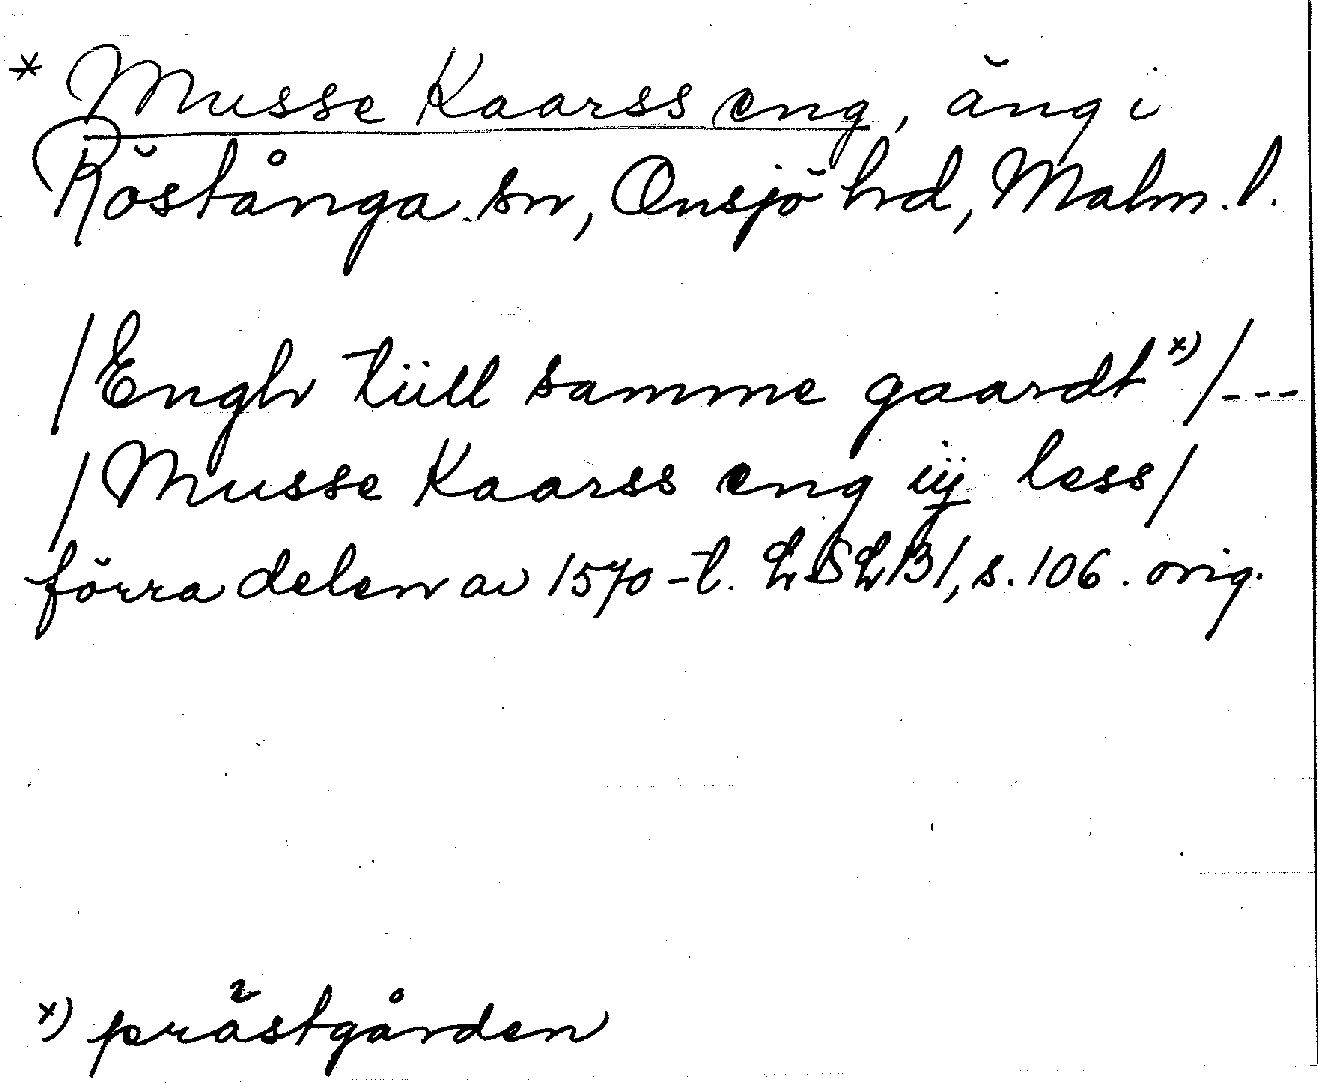 * Musse Kaarss eng, äng i
Röstånga sn, Onsjö hd, Malm. l.
/Engh tüll samme gaardt x)/---
/Musse Kaarss eng iij less/
förra delen av 1570-t. LSLB1, s. 106. orig.
x) prästgården